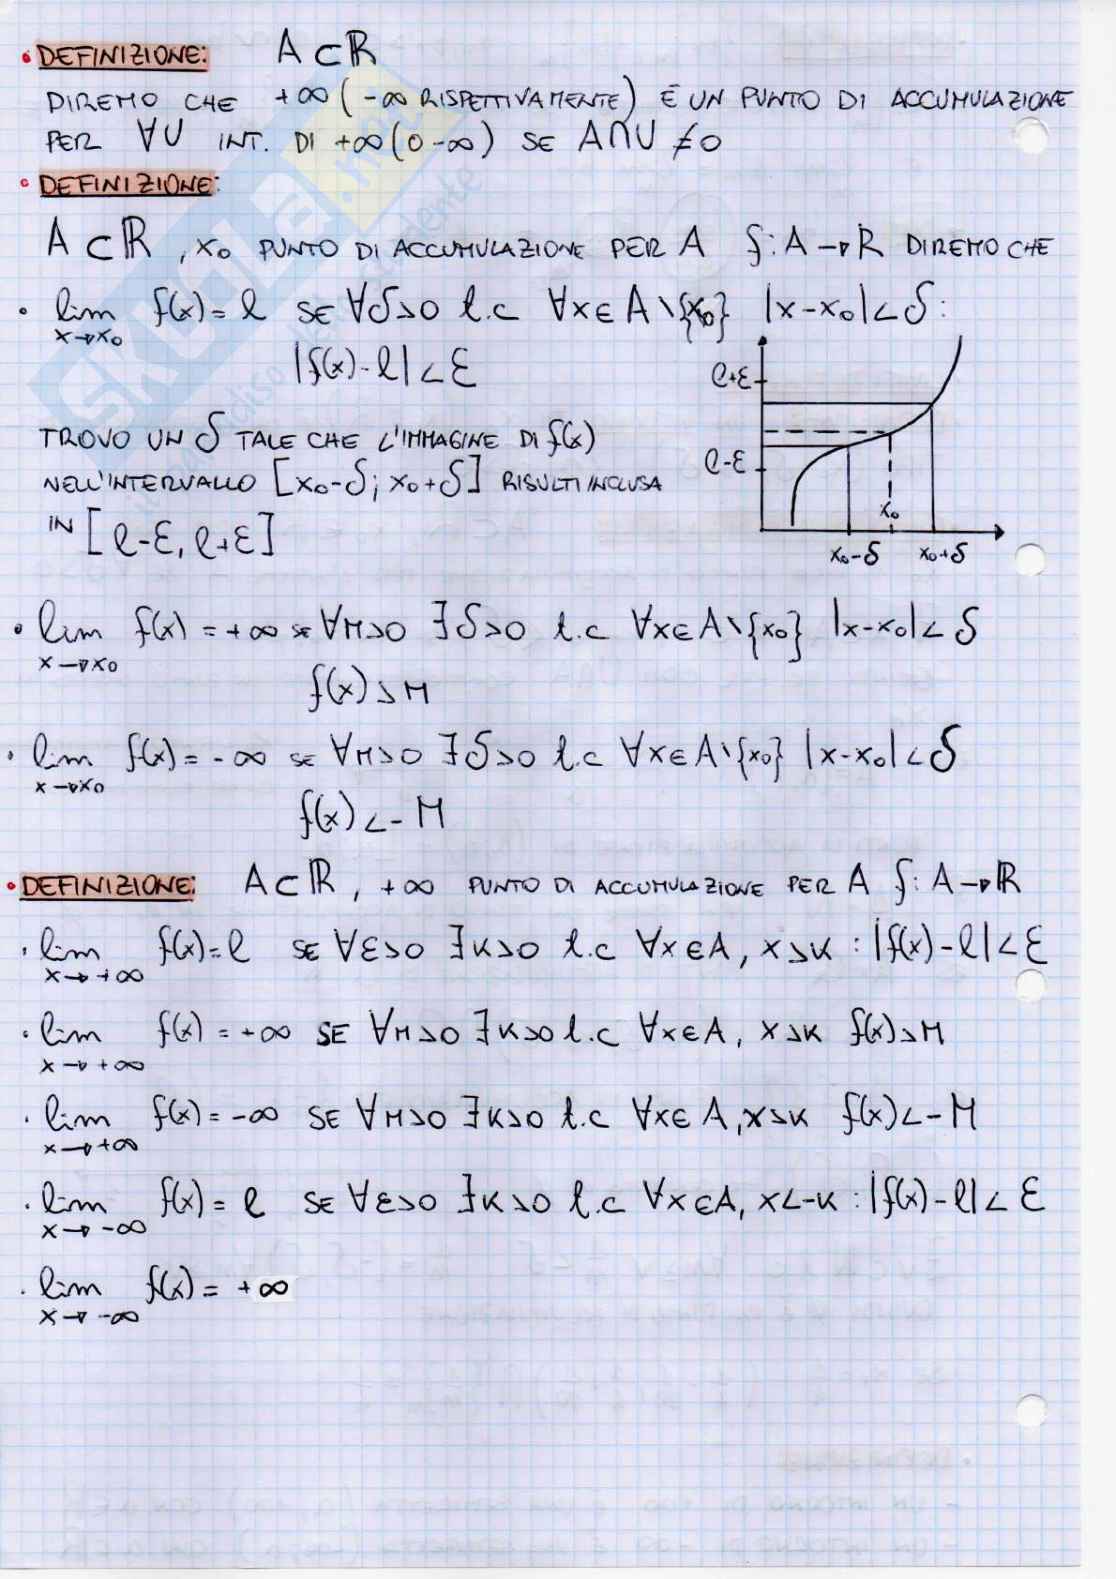 • DEFINIZIONE: A ⊂ ℝ
DIREMO CHE +∞ (-∞ RISPETTIVAMENTE) È UN PUNTO DI ACCUMULAZIONE
PER ∀U INT. DI +∞ (O -∞) SE A∩U ≠ 0
• DEFINIZIONE:
A ⊂ ℝ, x₀ PUNTO DI ACCUMULAZIONE PER A f: A → R DIREMO CHE
• lim f(x) = l SE ∀δ>0 t.c ∀x∈A\{x₀} |x-x₀|<δ:
x→x₀
|f(x)-l|<ε
TROVO UN δ TALE CHE L'IMMAGINE DI f(x)
NELL'INTERVALLO [x₀-δ; x₀+δ] RISULTI INCLUSA
IN [l-ε, l+ε]
l+ε
l-ε
x₀
x₀-δ x₀+δ
• lim f(x) = +∞ se ∀M>0 ∃δ>0 t.c ∀x∈A\{x₀} |x-x₀|<δ
x→x₀
f(x)>M
• lim f(x) = -∞ se ∀M>0 ∃δ>0 t.c ∀x∈A\{x₀} |x-x₀|<δ
x→x₀
f(x)<-M
• DEFINIZIONE: A ⊂ ℝ, +∞ PUNTO DI ACCUMULAZIONE PER A f: A → ℝ
• lim f(x) = l SE ∀ε>0 ∃K>0 t.c ∀x∈A, x>K : |f(x)-l|<ε
x→+∞
• lim f(x) = +∞ SE ∀M>0 ∃K>0 t.c ∀x∈A, x>K f(x)>M
x→+∞
• lim f(x) = -∞ SE ∀M>0 ∃K>0 t.c ∀x∈A, x>K f(x)<-M
x→+∞
• lim f(x) = l SE ∀ε>0 ∃K>0 t.c ∀x∈A, x<-K : |f(x)-l|<ε
x→-∞
• lim f(x) = +∞
x→-∞